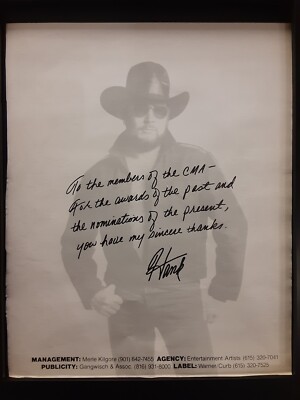 To the members of the CMA –
For the awards of the past and
the nominations of the present,
you have my sincere thanks.
Hank
MANAGEMENT: Merle Kilgore (901) 642-7455 AGENCY: Entertainment Artists (615) 320-7041
PUBLICITY: Gangwisch & Assoc. (816) 931-8000 LABEL: Warner/Curb (615) 320-7525